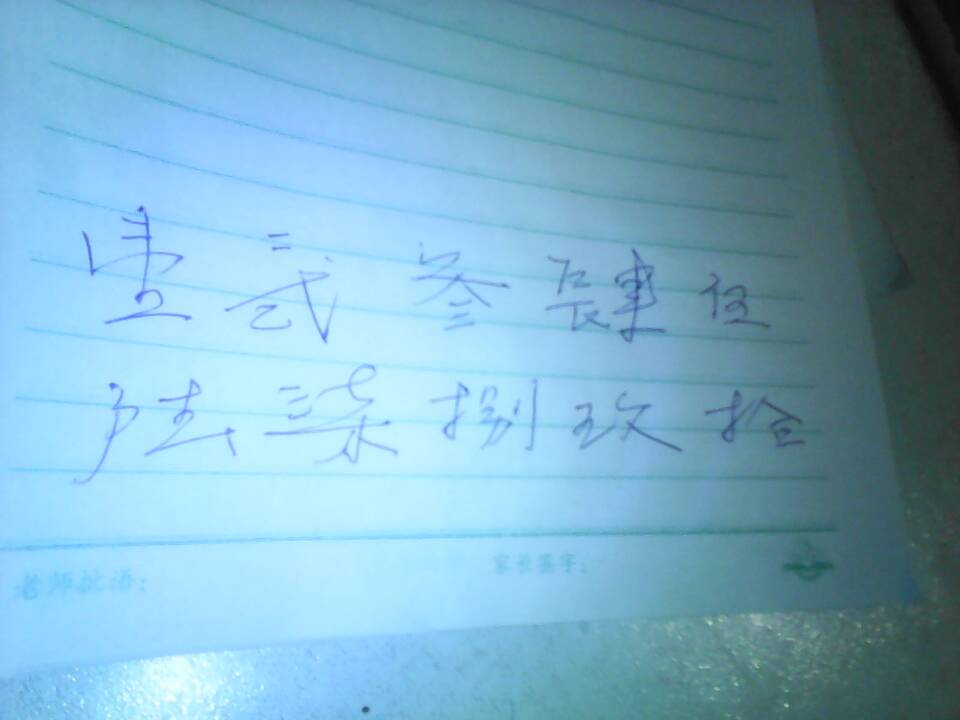 壹贰叁肆伍
陆柒捌玖拾
老师批语： 家长签字：